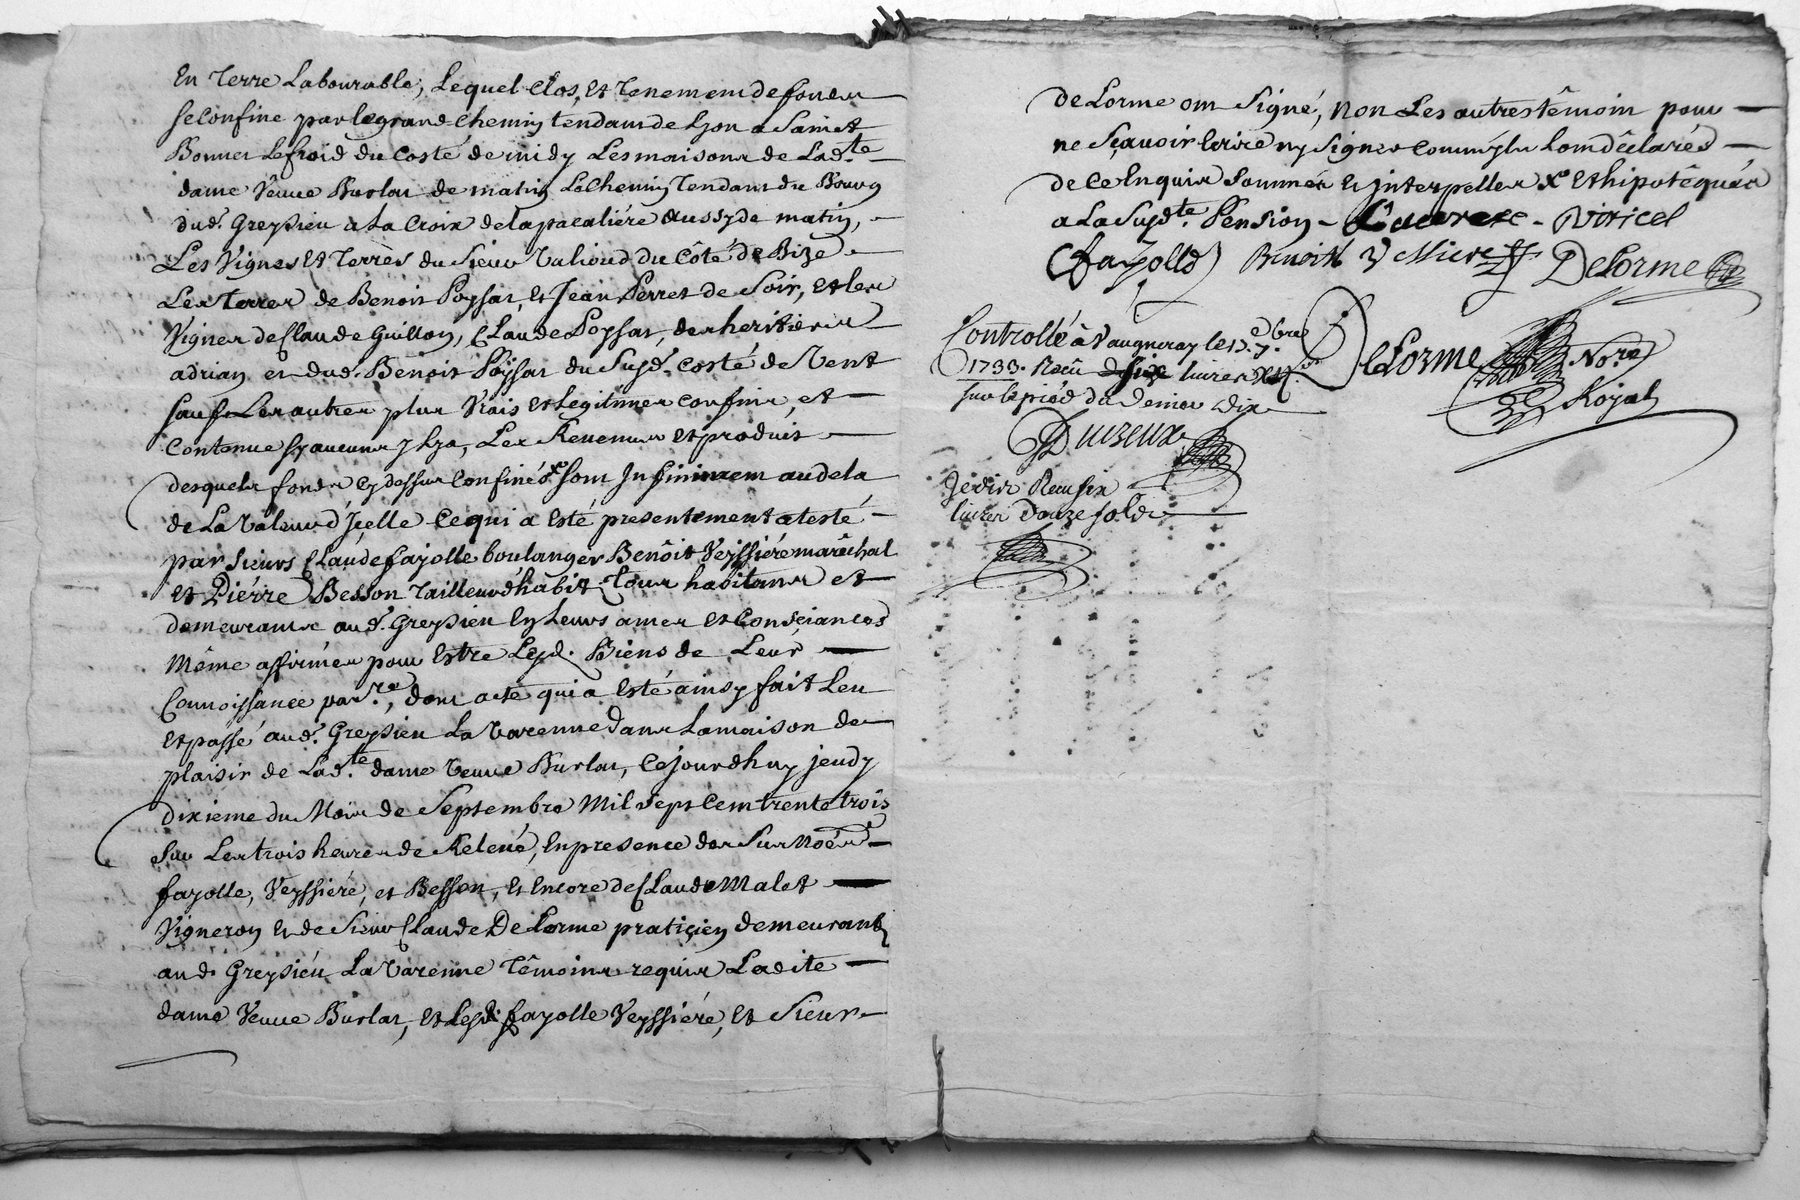 En Terre Labourable, Lequel Clos, et Tenement de fonds
se Confine par le grand Chemin tendant de Lyon a Sainct
Bonnet Lefroid du Costé de midy Les maisons de Lad.te
dame Veuve Burlat de matin Le Chemin Tendant du Bourg
dud. Greysieu a La Croix de la aussy de matin,
Les Vignes Et Terres du Sieur Valioud du Côté de Bize
Les Terres de Benoit Poyssat, Et Jean Perret de Soir, et les
Vignes de Claude Guillon, Claude Poyssat, des heritiers
adrian et dud. Benoit Poyssat du Susd. Costé de Vent
sauf Les autres plus Vrais et legitimes confins, et
Contenue sy aucuns Il y a, Les Revenus et produits
desquels fonds cy dessus Confinés sont Infiniment audela
de La Valeur d'Icelle Ce qui a Esté presentement atesté
par Sieurs Claude fayolle boulanger Benôit Veyssiére marêchal
et Piérre Besson Tailleur d'habit Tous habitans et
demeurants aud. Greysieu En Leurs ames et Consciances
Même affirmés pour Estre Lesd. Biens de Leur
Connoissance par.re, dont acte qui a Esté ainsy fait Leu
et passé aud. Greysieu La Varenne dans La maison de
plaisir de Lad.te dame Veuve Burlat, Cejourdhuy jeudy
dixieme du Mois de Septembre Mil sept Cent trente trois
sur Les trois heures de Relevé, En presence des Susnoés
fayolle, Veyssiére, et Besson, et Encore de Claude Malet
Vigneron Et de Sieur Claude DeLorme pratiçien demeurants
aud. Greysiéu La Varenne Témoins requis Ladite
dame Veuve Burlat, et Lesd. fayolle Veyssiére, Et Sieur
deLorme ont Signé, Non Les autres têmoins pour
ne Sçavoir Ecrire ny Signer comm'yls L'ont dêclarés
de Ce Enquis Sommés et Interpellés X.e Et hipotêqués
a La Susd.te Pension - - Viricel
C fayolle Benoit V DeLorme
Controllé à Vaugneray le 17. 7.bre
1733. Reçu six livres
sur le piéd du Denier dix
DeLorme No.re
Royal
Duzeux
Je dis Reçu six
livres Douze sols